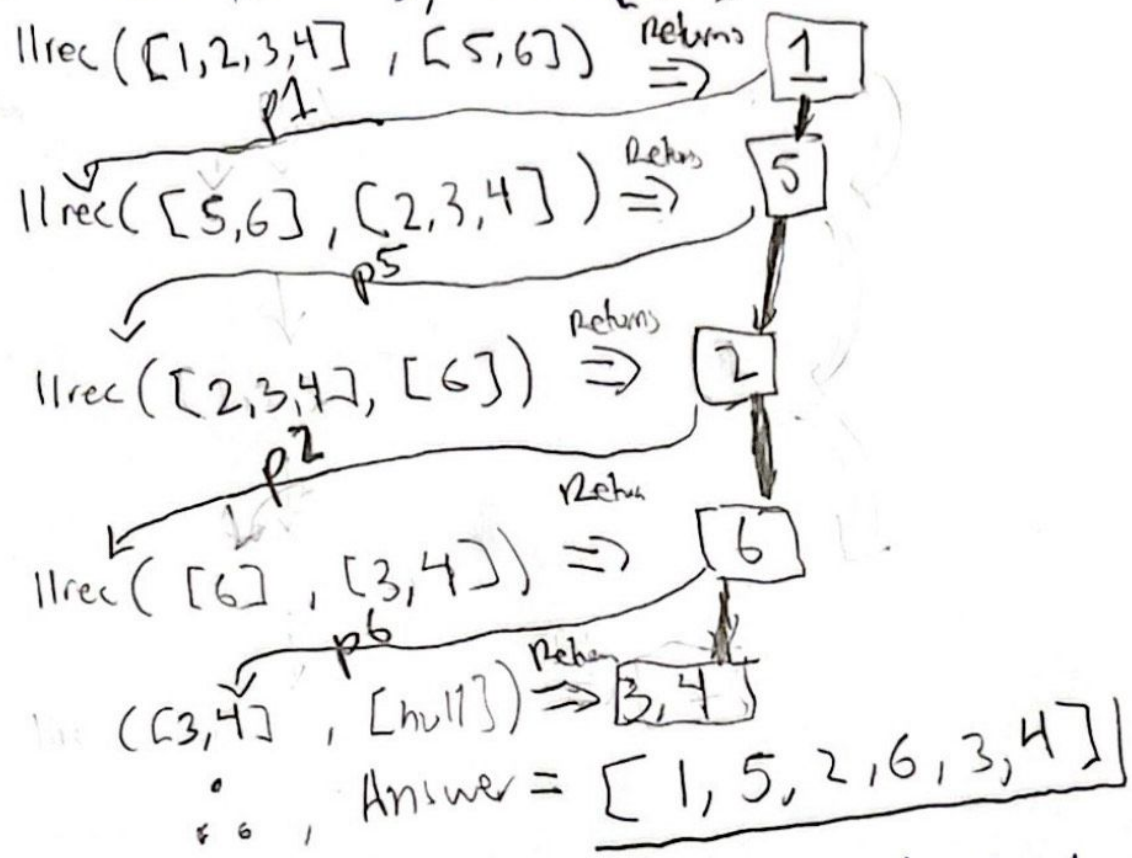 llrec([1,2,3,4] , [5,6]) Returns ⇒ 1
p1
llrec([5,6] , [2,3,4]) Return ⇒ 5
p5
llrec([2,3,4], [6]) Returns ⇒ 2
p2
llrec([6] , [3,4]) Return ⇒ 6
p6
([3,4] , [null]) Return ⇒ 3,4
, Answer = [1, 5, 2, 6, 3, 4]